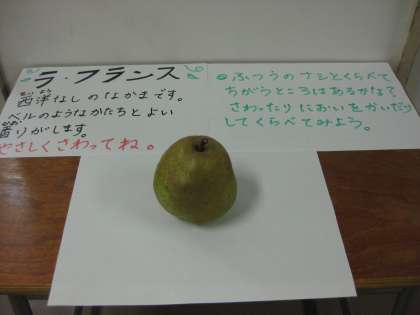 ラ・フランス
西洋なしのなかまです。
ベルのようなかたちとよい
香りがします。
やさしくさわってね。
ふつうのナシとくらべて
ちがうところはあるかな?
さわったりにおいをかいだり
してくらべてみよう。